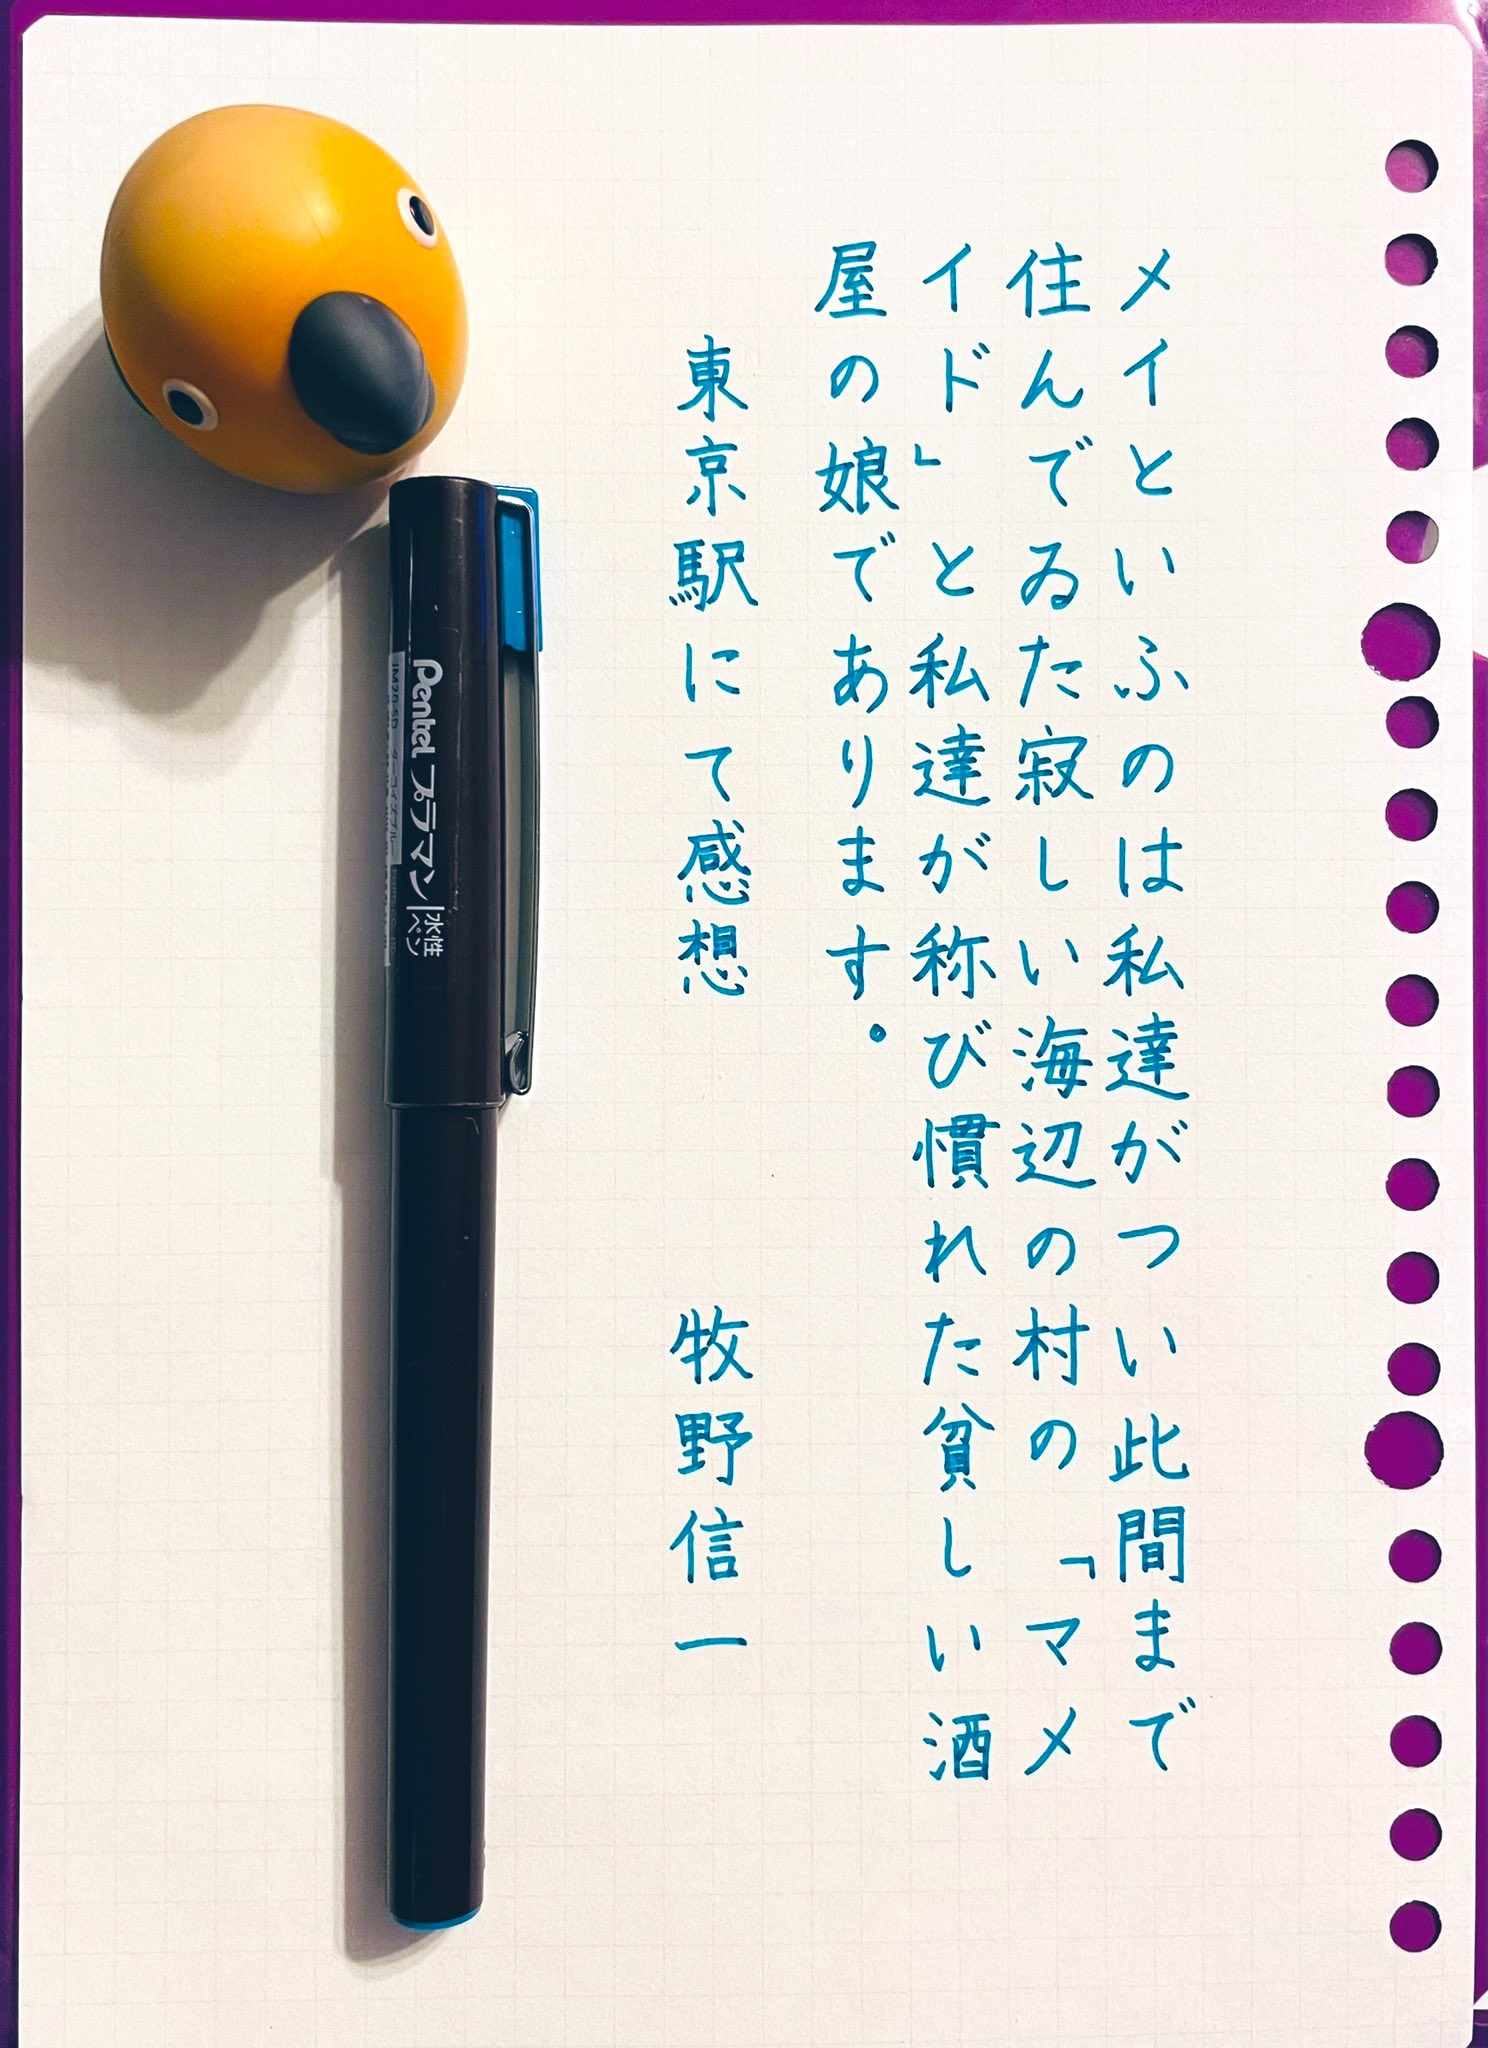 メイといふのは私達がつい此間まで
住んでゐた寂しい海辺の村の「マメ
イド」と私達が称び慣れた貧しい酒
屋の娘であります。
東京駅にて感想　牧野信一
Pentel プラマン 水性ペン
JM20-SD ターコイズブルー